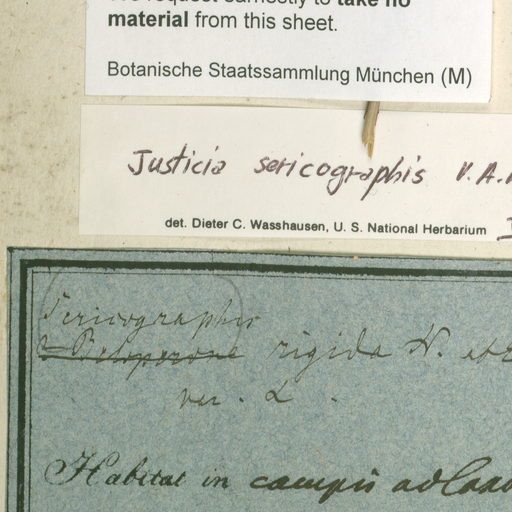 to take no
material from this sheet.
Botanische Staatssammlung München (M)
Justicia sericographis V.A.
det. Dieter C. Wasshausen, U. S. National Herbarium
Sericographis
Beloperone rigida N. et
var. α.
Habitat in campis ad